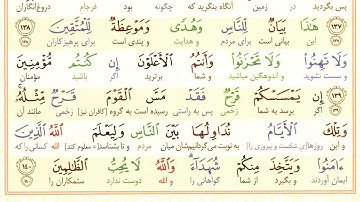 پس بگردید در زمین آنگاه بنگرید که چگونه بود فرجام دروغ‌انگاران
هَٰذَا بَيَانٌ لِّلنَّاسِ وَهُدًى وَمَوْعِظَةٌ لِّلْمُتَّقِينَ ١٣٨
این بیانی است برای مردم و هدایت و پندی است برای پرهیزکاران
وَلَا تَهِنُوا وَلَا تَحْزَنُوا وَأَنتُمُ الْأَعْلَوْنَ إِن كُنتُم مُّؤْمِنِينَ
و سست نشوید و اندوهگین مباشید و شما برترید اگر باشید مؤمنان
١٣٩ إِن يَمْسَسْكُمْ قَرْحٌ فَقَدْ مَسَّ الْقَوْمَ قَرْحٌ مِّثْلُهُ
اگر برسد به شما زخمی پس به راستی رسیده است به گروه [کافران نیز] زخمی مانند آن
وَتِلْكَ الْأَيَّامُ نُدَاوِلُهَا بَيْنَ النَّاسِ وَلِيَعْلَمَ اللَّهُ الَّذِينَ
و این روزهای شکست و پیروزی را به نوبت می‌گردانیم‌شان میان مردم و تا بشناسد [=معلوم کند] الله کسانی را که
ءَامَنُوا وَيَتَّخِذَ مِنكُمْ شُهَدَاءَ وَاللَّهُ لَا يُحِبُّ الظَّالِمِينَ ١٤٠
ایمان آوردند و بگیرد از شما گواهانی را و الله دوست ندارد ستمکاران را